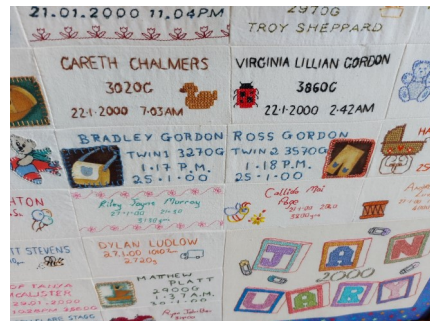 21.01.2000 11.04PM
2970G
TROY SHEPPARD
GARETH CHALMERS
3020G
22·1·2000 7·03AM
VIRGINIA LILLIAN GORDON
3860G
22·1·2000 2·42AM
BRADLEY GORDON
TWIN 1 3270G
1·17 P.M.
25-1-00
ROSS GORDON
TWIN 2 3570G
1·18 P.M.
25-1-00
HTON
Riley Jayne Murray
Callide Mai
Page
TT STEVENS
DYLAN LUDLOW
27.1.00
2720g
MATHEW
PLATT
2900G
1·37 A.M.
30·1·00
JANUARY
2000